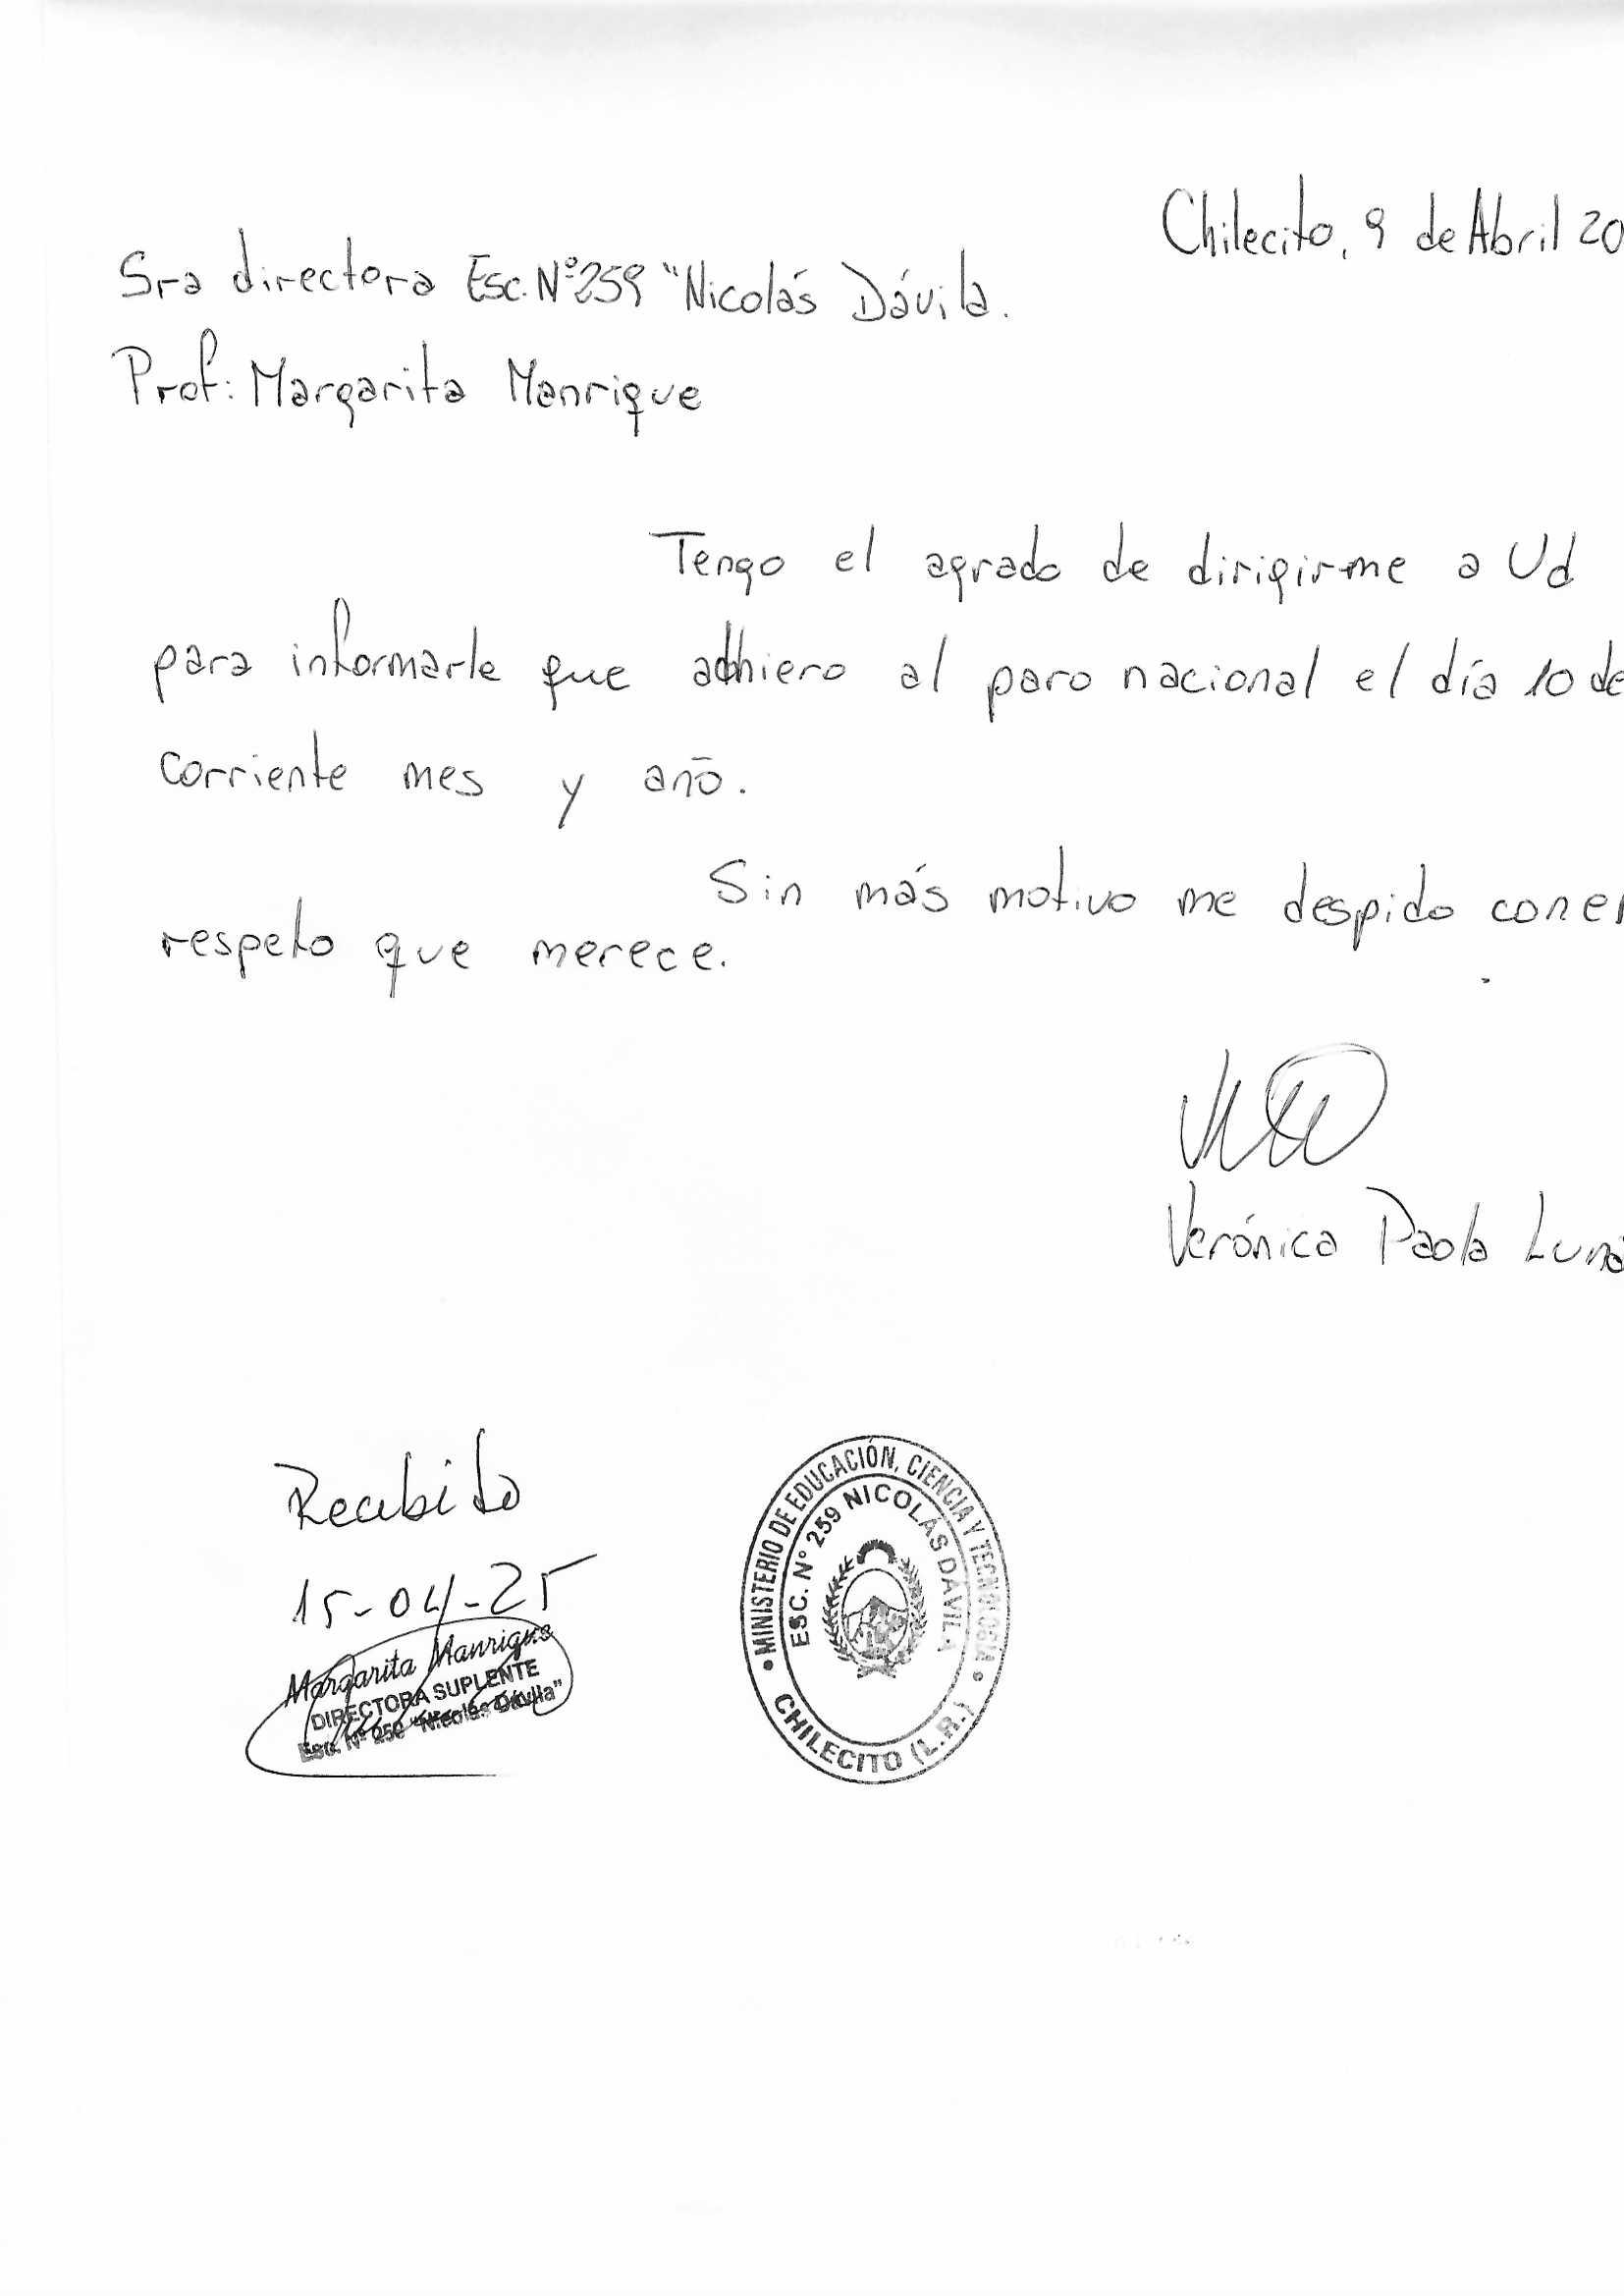 Chilecito, 9 de Abril 20
Sra directora Esc. N°259 "Nicolás Dávila.
Prof: Margarita Manrique
Tengo el agrado de dirigirme a Ud
para informarle que adhiero al paro nacional el día 10 de
corriente mes y año.
Sin más motivo me despido con el
respeto que merece.
Verónica Paola Luna
Recibido
15-04-25
Margarita Manrique
DIRECTORA SUPLENTE
Esc. Nº 259 "Nicolás Dávila"
• MINISTERIO DE EDUCACIÓN, CIENCIA Y TECNOLOGIA •
ESC. N° 259 NICOLÁS DÁVILA
CHILECITO (L.R.)